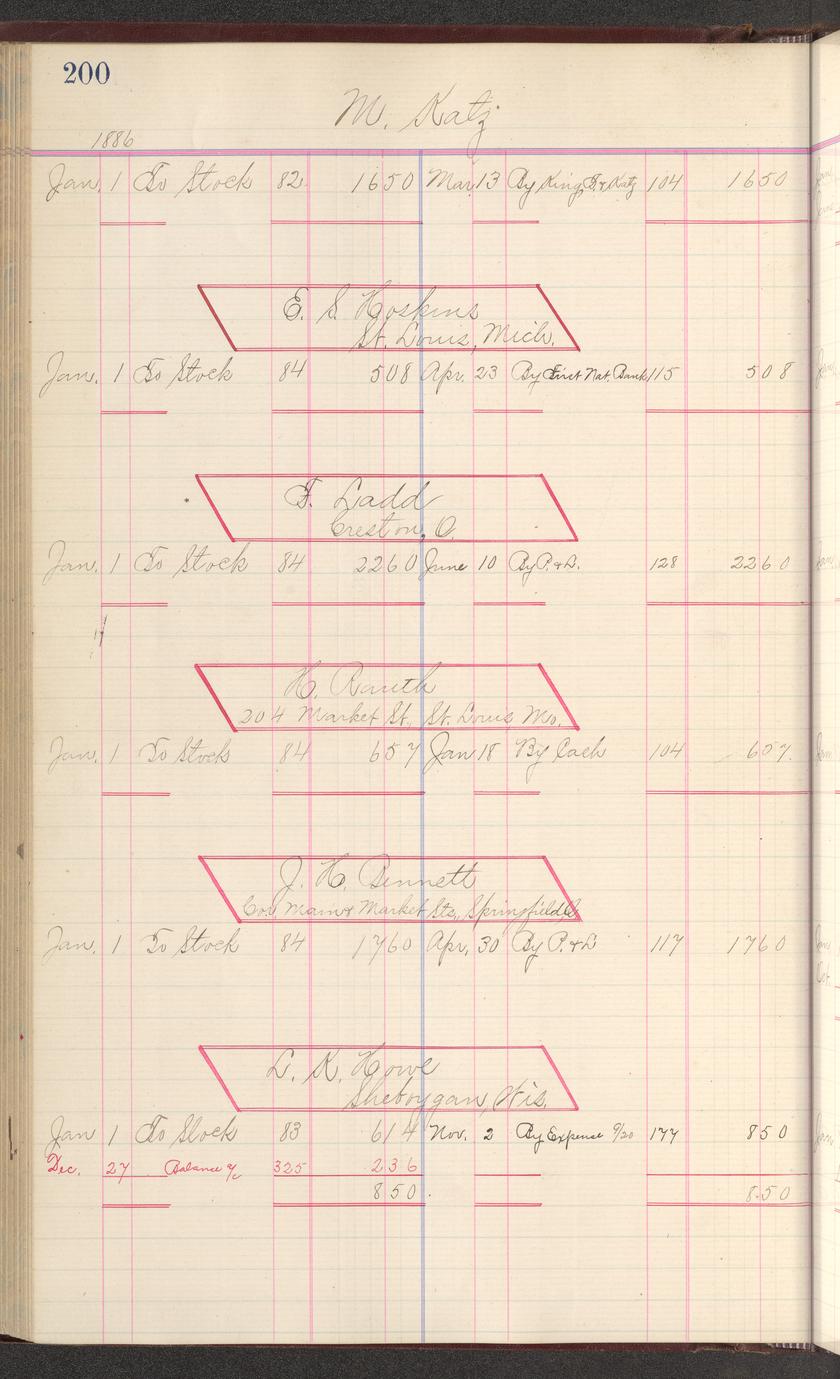 200
M. Katz
1886
Jan. 1 To Stock 82 1650 Mar 13 By King, & Katz 104 1650
E. S. Hoskins
St. Louis, Mich.
Jan. 1 To Stock 84 508 Apr. 23 By First Nat. Bank 115 508
F. Ladd
Creston, O.
Jan. 1 To Stock 84 2260 June 10 By P. & L. 128 2260
H. Rauth
204 Market St., St. Louis Mo.
Jan. 1 To Stock 84 657 Jan 18 By Cash 104 657.
J. H. Bennett
Cor. Main & Market Sts., Springfield, O.
Jan. 1 To Stock 84 1760 Apr. 30 By P. & L 117 1760
L. K. Howe
Sheboygan, Wis.
Jan 1 To Stock 83 614 Nov. 2 By Expense 9/20 177 850
Dec. 27 Balance a/c 325 236
850. 850